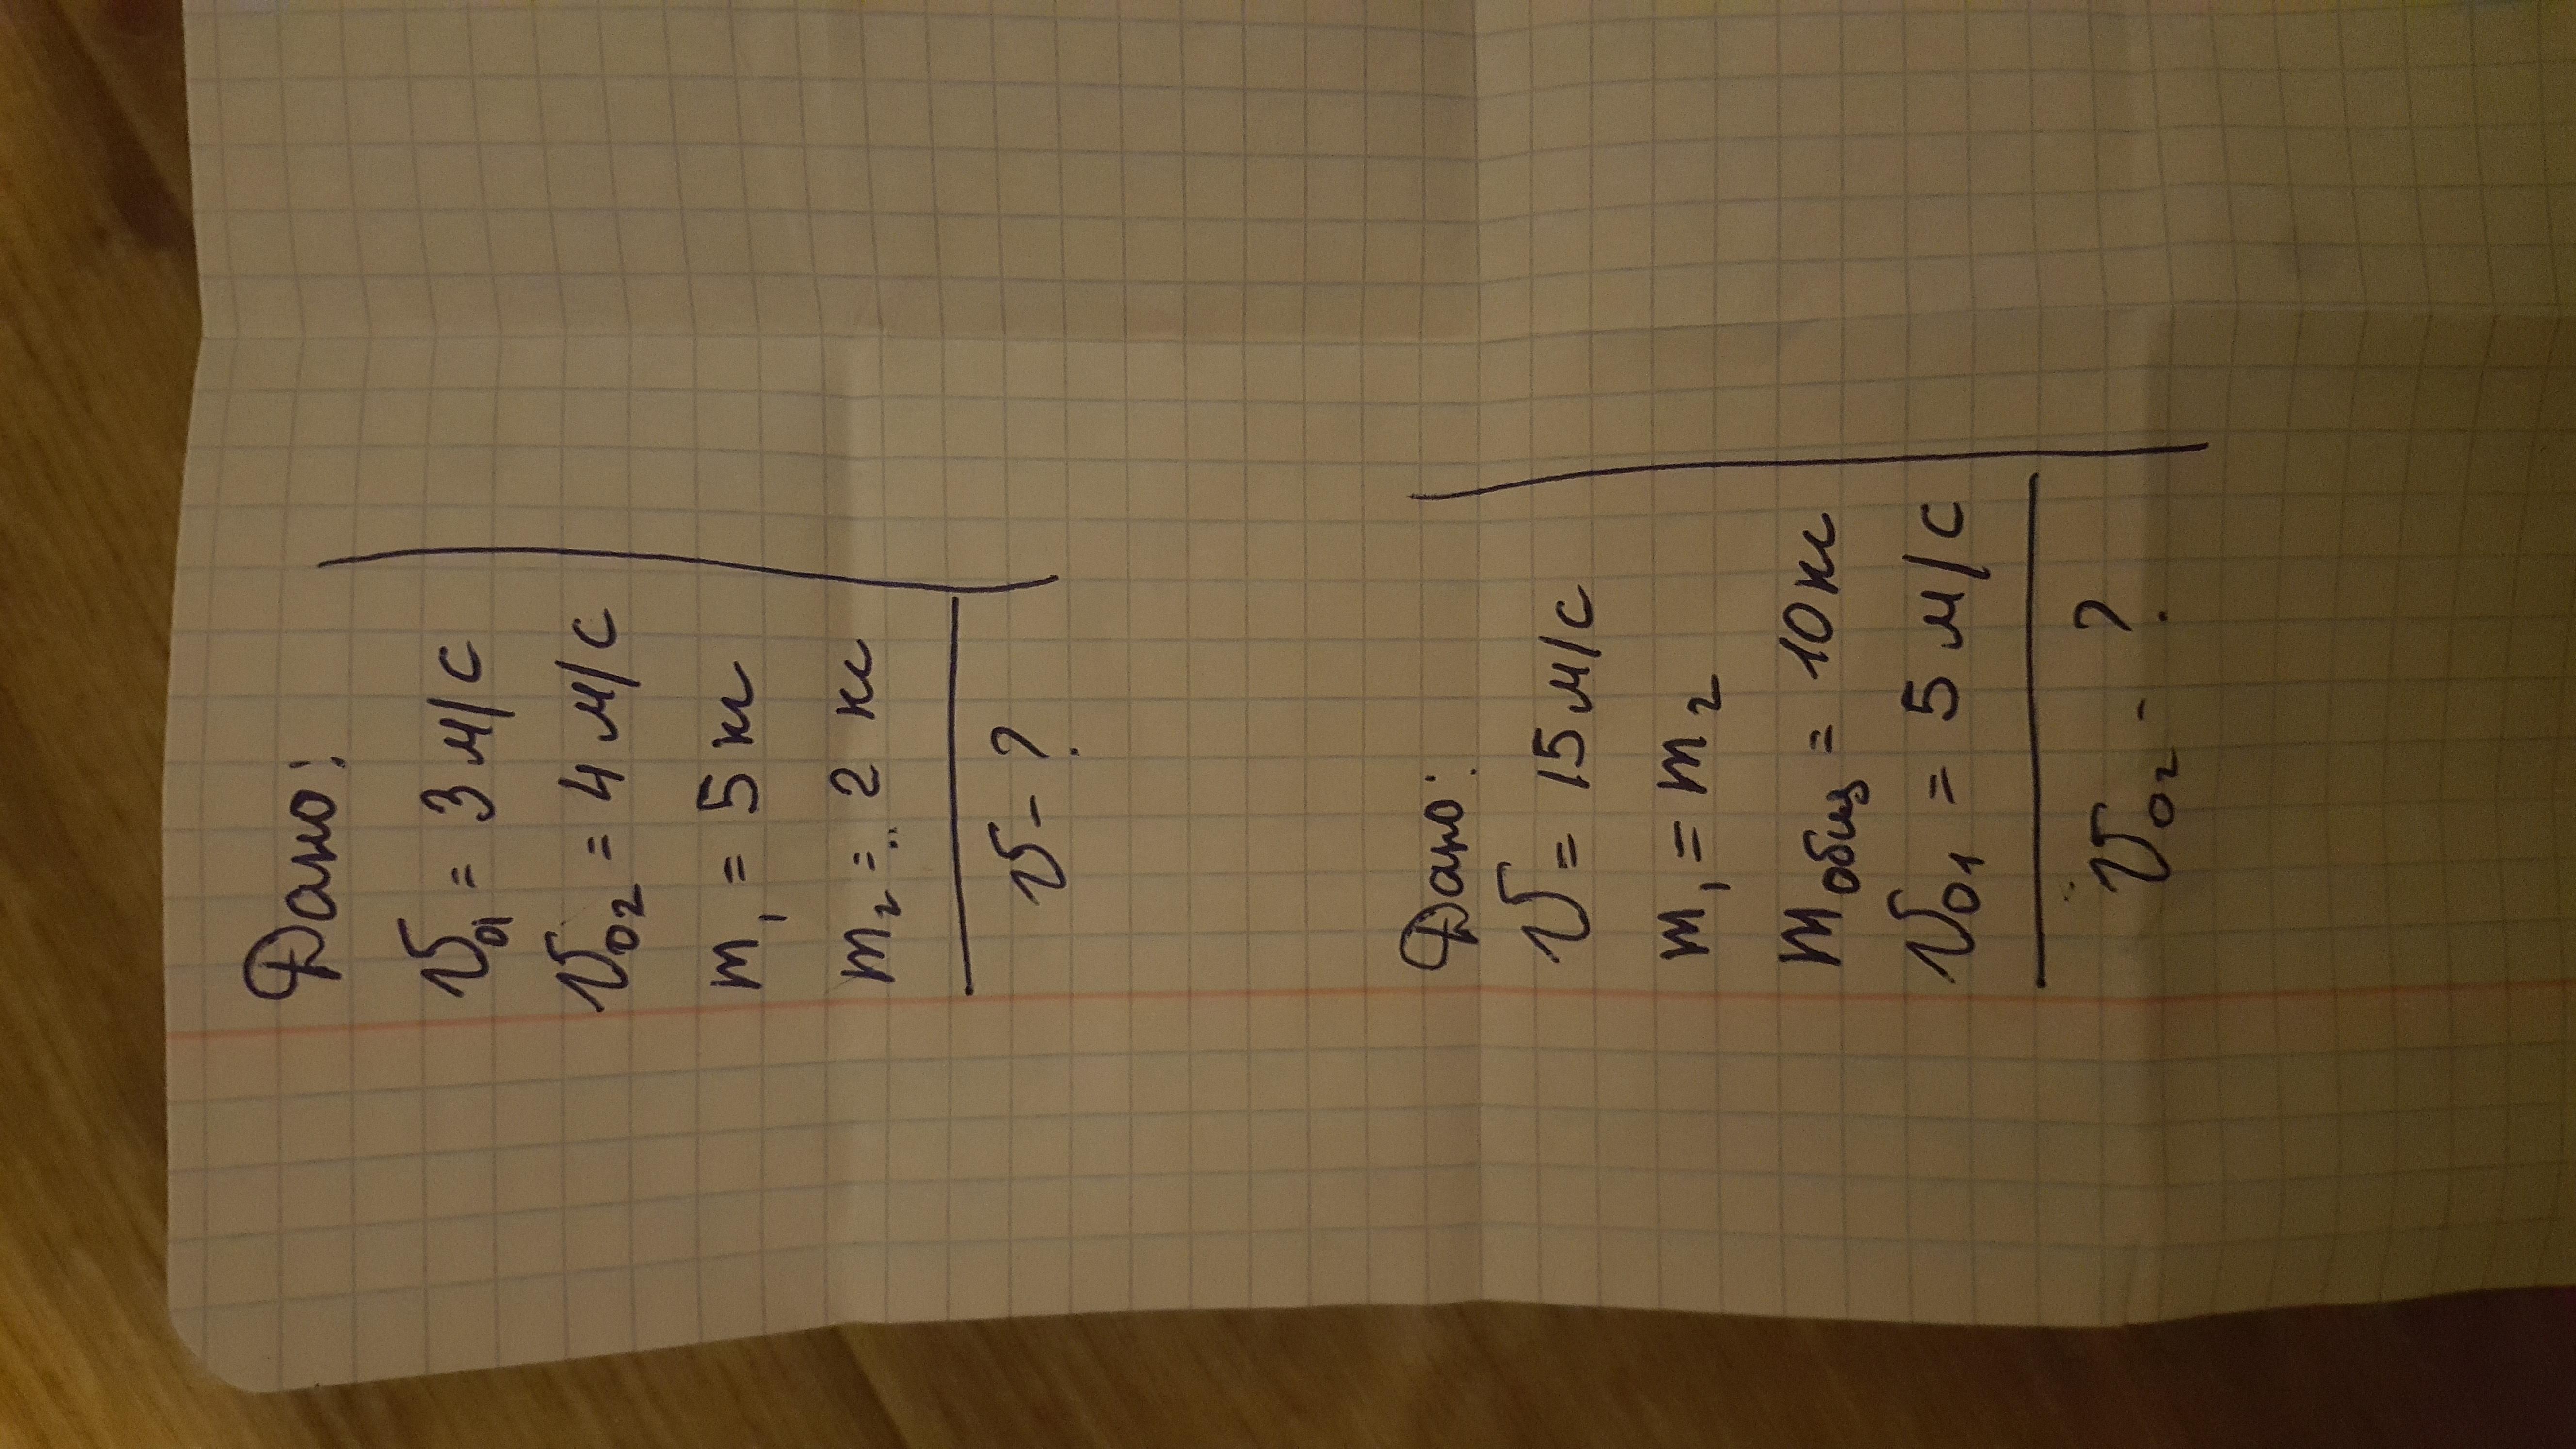 Дано:
v01 = 3 м/с
v02 = 4 м/с
m1 = 5 кг
m2 = 2 кг
v - ?
Дано:
v = 15 м/с
m1 = m2
mобщ = 10 кг
v01 = 5 м/с
v02 - ?